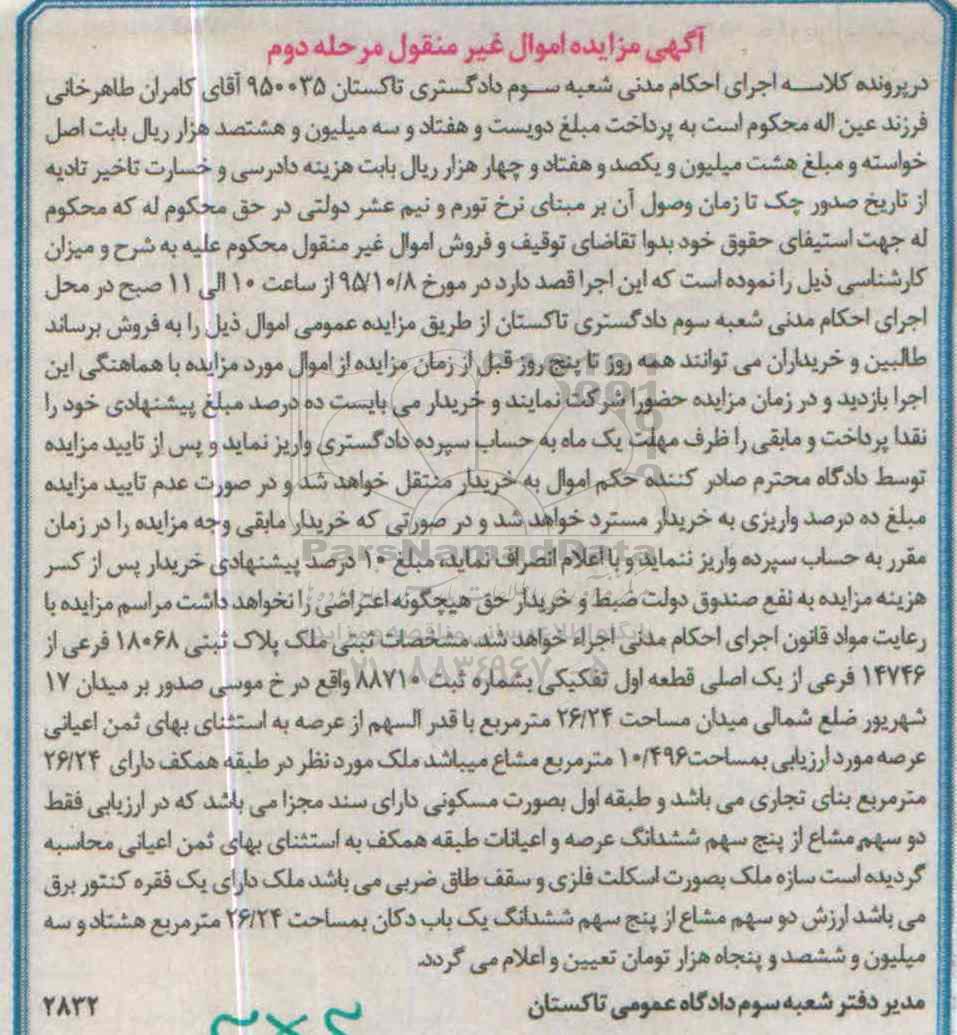 آگهی مزایده اموال غیر منقول مرحله دوم
درپرونده کلاسه اجرای احکام مدنی شعبه سوم دادگستری تاکستان ۹۵۰۰۳۵ آقای کامران طاهرخانی
فرزند عین اله محکوم است به پرداخت مبلغ دویست و هفتاد و سه میلیون و هشتصد هزار ریال بابت اصل
خواسته و مبلغ هشت میلیون و یکصد و هفتاد و چهار هزار ریال بابت هزینه دادرسی و خسارت تاخیر تادیه
از تاریخ صدور چک تا زمان وصول آن بر مبنای نرخ تورم و نیم عشر دولتی در حق محکوم له که محکوم
له جهت استیفای حقوق خود بدوا تقاضای توقیف و فروش اموال غیر منقول محکوم علیه به شرح و میزان
کارشناسی ذیل را نموده است که این اجرا قصد دارد در مورخ ۹۵/۱۰/۸ از ساعت ۱۰ الی ۱۱ صبح در محل
اجرای احکام مدنی شعبه سوم دادگستری تاکستان از طریق مزایده عمومی اموال ذیل را به فروش برساند
طالبین و خریداران می توانند همه روز تا پنج روز قبل از زمان مزایده از اموال مورد مزایده با هماهنگی این
اجرا بازدید و در زمان مزایده حضورا شرکت نمایند و خریدار می بایست ده درصد مبلغ پیشنهادی خود را
نقدا پرداخت و مابقی را ظرف مهلت یک ماه به حساب سپرده دادگستری واریز نماید و پس از تایید مزایده
توسط دادگاه محترم صادر کننده حکم اموال به خریدار منتقل خواهد شد و در صورت عدم تایید مزایده
مبلغ ده درصد واریزی به خریدار مسترد خواهد شد و در صورتی که خریدار مابقی وجه مزایده را در زمان
مقرر به حساب سپرده واریز ننماید و یا اعلام انصراف نماید، مبلغ ۱۰ درصد پیشنهادی خریدار پس از کسر
هزینه مزایده به نفع صندوق دولت ضبط و خریدار حق هیچگونه اعتراضی را نخواهد داشت مراسم مزایده با
رعایت مواد قانون اجرای احکام مدنی اجراء خواهد شد. مشخصات ثبتی ملک پلاک ثبتی ۱۸۰۶۸ فرعی از
۱۴۷۴۶ فرعی از یک اصلی قطعه اول تفکیکی بشماره ثبت ۸۸۷۱۰ واقع در خ موسی صدور بر میدان ۱۷
شهریور ضلع شمالی میدان مساحت ۲۶/۲۴ مترمربع با قدر السهم از عرصه به استثنای بهای ثمن اعیانی
عرصه مورد ارزیابی بمساحت۱۰/۴۹۶ مترمربع مشاع میباشد ملک مورد نظر در طبقه همکف دارای ۲۶/۲۴
مترمربع بنای تجاری می باشد و طبقه اول بصورت مسکونی دارای سند مجزا می باشد که در ارزیابی فقط
دو سهم مشاع از پنج سهم ششدانگ عرصه و اعیانات طبقه همکف به استثنای بهای ثمن اعیانی محاسبه
گردیده است سازه ملک بصورت اسکلت فلزی و سقف طاق ضربی می باشد ملک دارای یک فقره کنتور برق
می باشد ارزش دو سهم مشاع از پنج سهم ششدانگ یک باب دکان بمساحت ۲۶/۲۴ مترمربع هشتاد و سه
میلیون و ششصد و پنجاه هزار تومان تعیین و اعلام می گردد.
مدیر دفتر شعبه سوم دادگاه عمومی تاکستان ۲۸۳۲
ParsNamadData